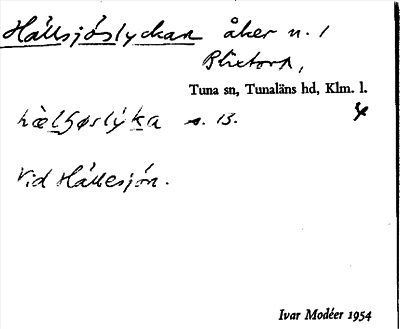 Hällsjöslyckan åker n. 1
Blixtorp,
Tuna sn, Tunaläns hd, Klm. l.
s. 13. 4
Vid Hällesjön.
Ivar Modéer 1954